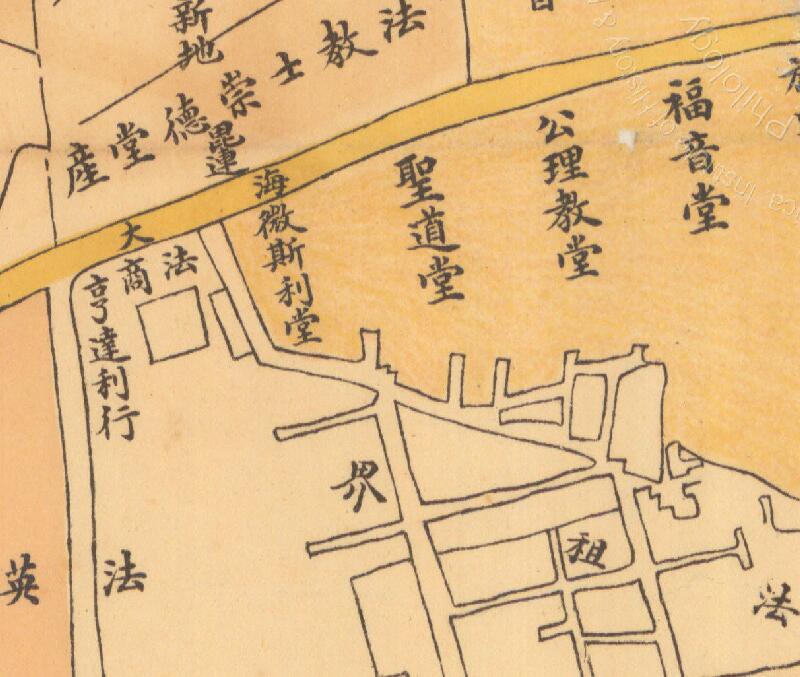 新地
法教士崇德堂產
毘連
福音堂
公理教堂
聖道堂
海微斯利堂
法
大商
亨達利行
界
租
英
法
法
Philology